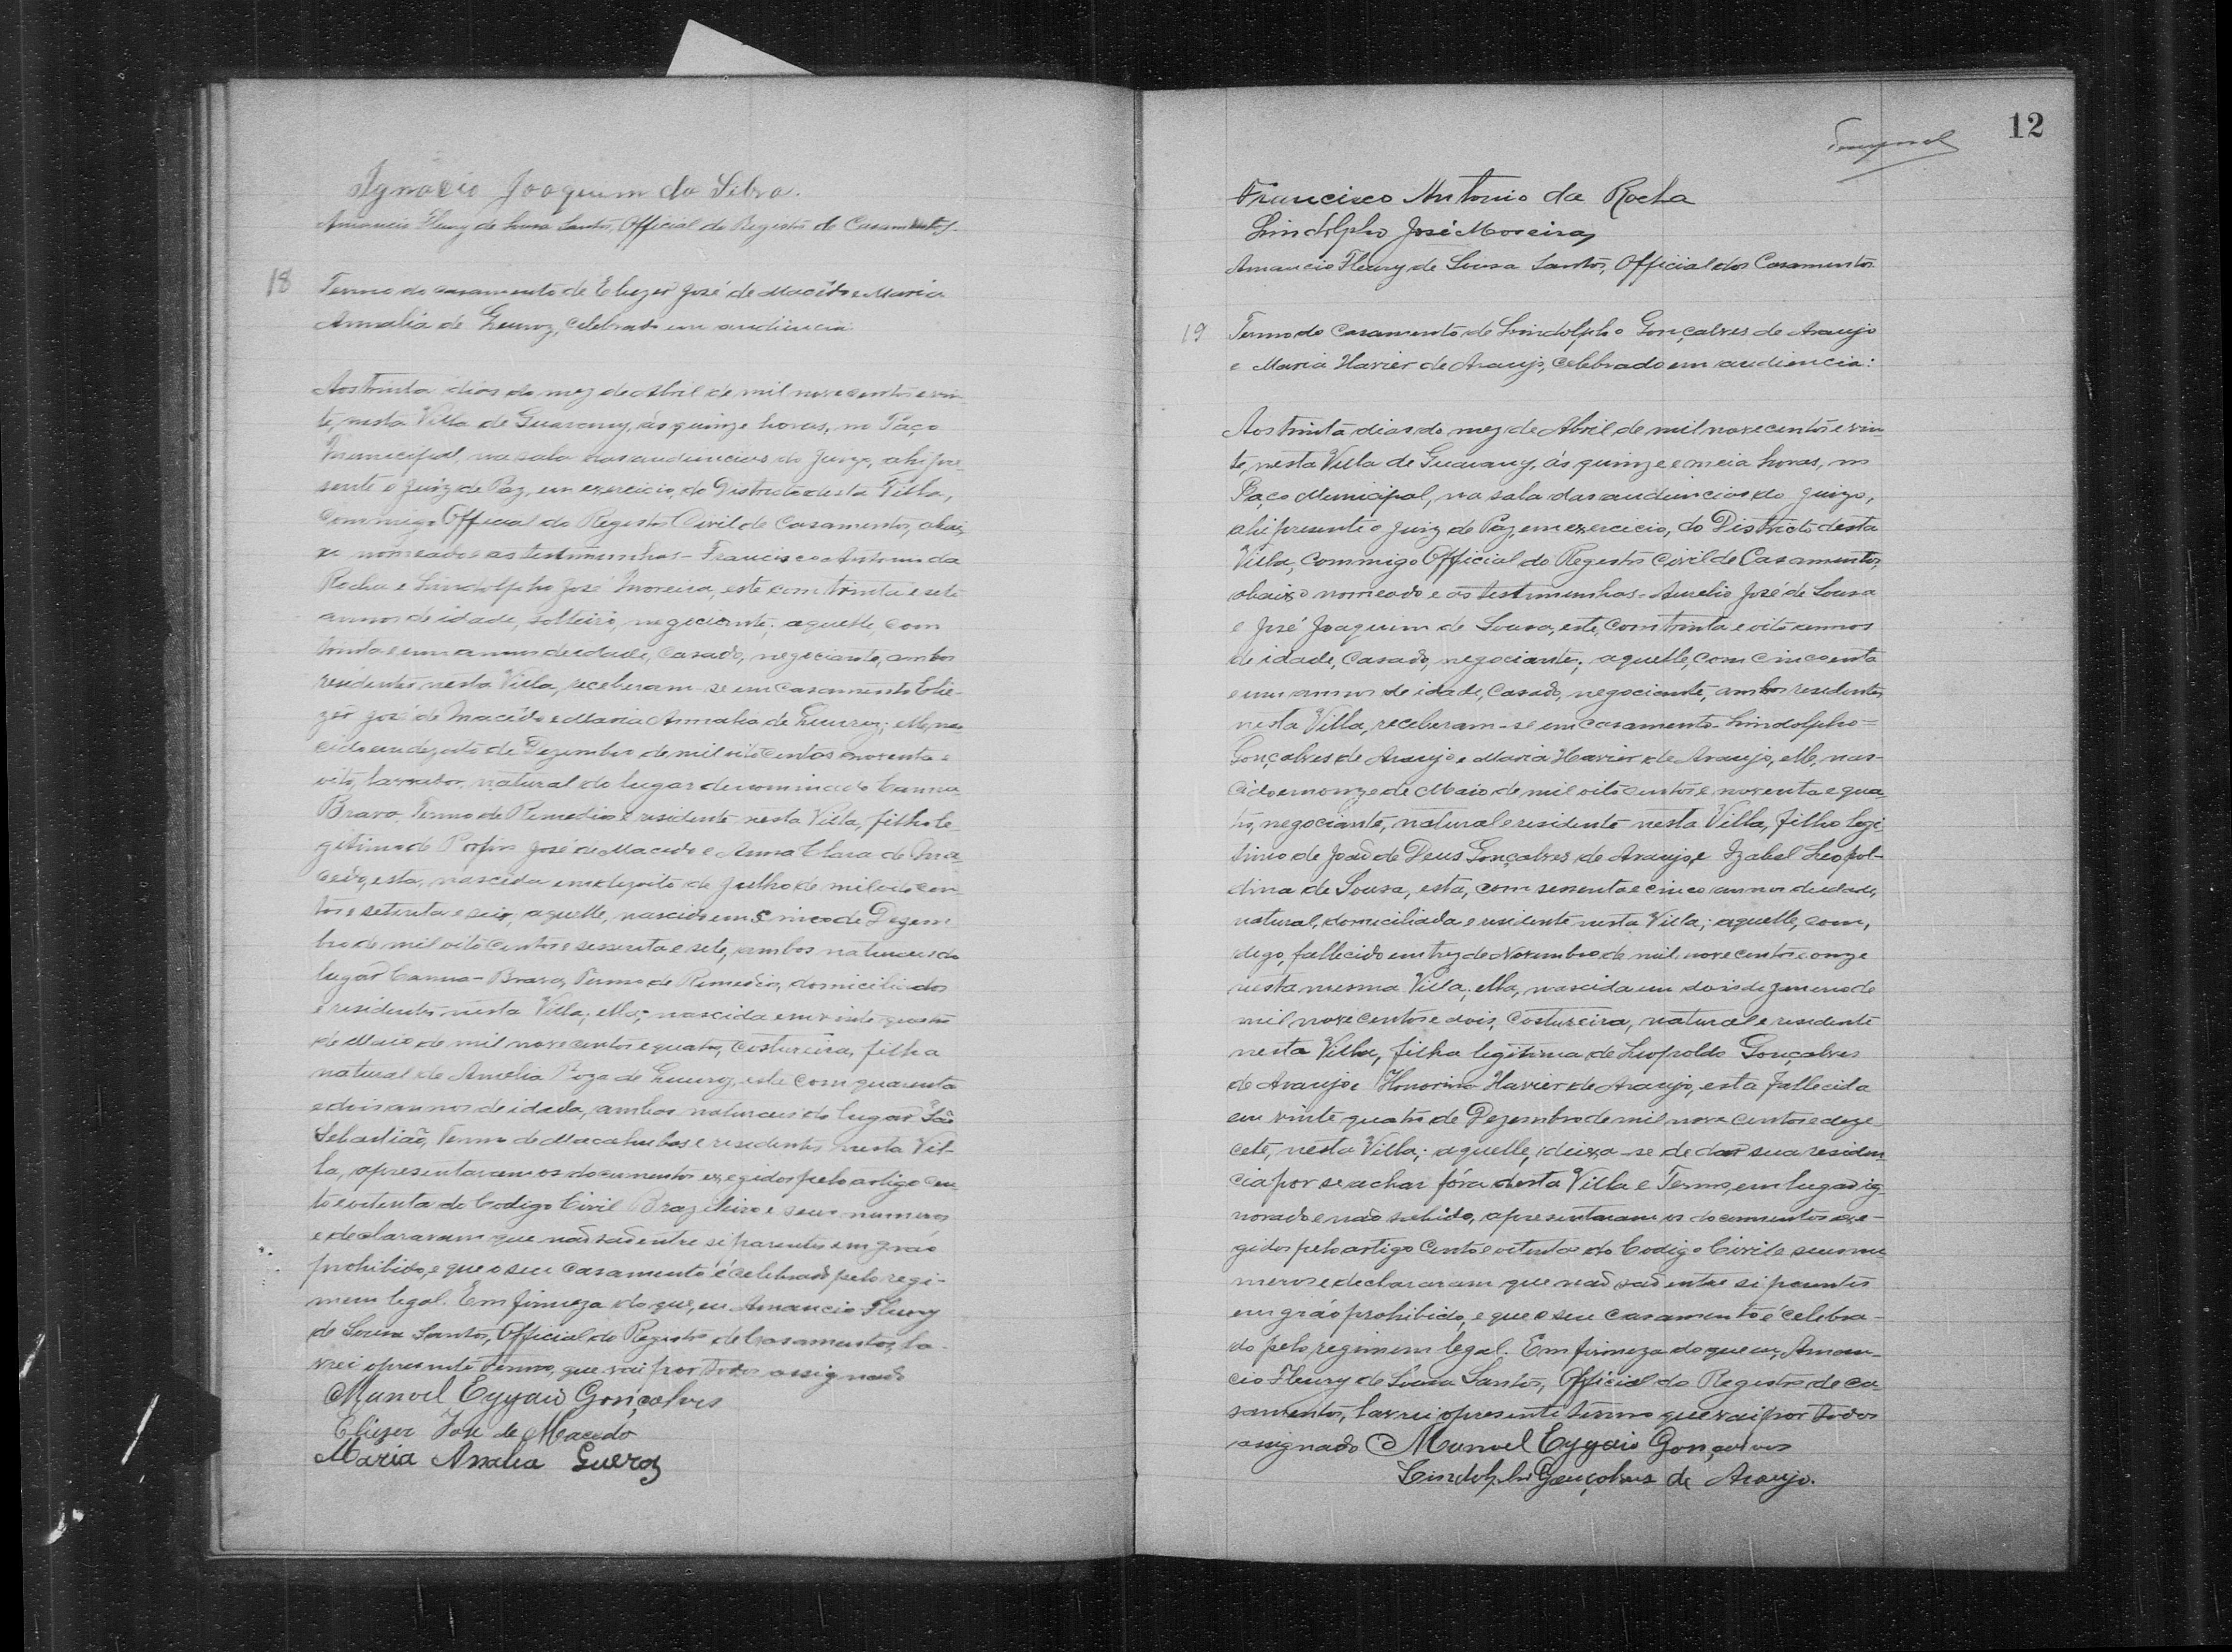 Ignacio Joaquim da Silva.
Amancio Fleury de Sousa Santos, Official do Registro de Casamentos.
18
Termo do casamento de Eliezer José de Macêdo e Maria
Annalia de Queiroz, celebrado em audiencia.
Aos trinta dias do mez de Abril de mil novecentos e vin-
te, nesta Villa de Guarany, ás quinze horas, no Paço
Municipal, na sala das audiencias do Juizo, ahi pre-
sente o Juiz de Paz, em exercicio, do Districto desta Villa,
commigo Official do Registro Civil de Casamentos, abai-
xo nomeado e as testimunhas - Francisco Antonio da
Rocha e Lindolpho José Moreira, este com trinta e sete
annos de idade, solteiro, negociante; aquelle, com
trinta e um annos de idade, casado, negociante, ambos
residentes nesta Villa, receberam-se em casamento Elie-
zer José de Macêdo e Maria Annalia de Queiroz; elle, nas-
cido em dezoito de Dezembro de mil oito centos e noventa e
oito, lavrador, natural do lugar denominado Canna-
Brava, Termo de Remedios e residente nesta Villa, filho le-
gitimo de José de Macedo e Anna Clara de Ma-
cedo, esta, nascida em dezoito de Julho de mil oito cen
tos e setenta e seis, aquelle, nascido em cinco de Dezem-
bro de mil oito centos e sessenta e sete, ambos naturaes do
lugar Canna-Brava, Termo de Remedios, domiciliados
e residentes nesta Villa; ella, nascida em vinte quatro
de Maio de mil novecentos e quatro, costureira, filha
natural de Amelia Roza de Queiroz, esta com quarenta
e dois annos de idade, ambas naturaes do lugar São
Sebastião, Termo de Macahubas e residentes nesta Vil-
la, apresentaram os documentos exegidos pelo artigo cen-
to e oitenta do Codigo Civil Brazileiro e seus numeros
e declararam que não são entre si parentes em gráo
prohibido, e que o seu casamento é celebrado pelo regi-
mem legal. Em firmeza do que, eu Amancio Fleury
de Sousa Santos, Official do Registro de Casamentos, la-
vrei o presente termo, que vai por todos assignado
Manoel Egypcio Gonçalves
Eliezer José de Macedo
Maria Analia Gueroz
12
Francisco Antonio da Rocha
Lindolpho José Moreira
Amancio Fleury de Sousa Santos, Official dos Casamentos
19
Termo do casamento de Lindolpho Gonçalves de Araujo
e Maria Xavier de Araujo, celebrado em audiencia:
Aos trinta dias do mez de Abril de mil novecentos e vin-
te, nesta Villa de Guarany, ás quinze e meia horas, no
Paço Municipal, na sala das audiencias do Juizo,
ahi presente o Juiz de Paz, em exercicio, do Districto desta
Villa, commigo Official do Registro Civil de Casamentos,
abaixo nomeado e as testimunhas - Aurelio José de Sousa
e José Joaquim de Sousa, este, com trinta e oito annos
de idade, casado, negociante; aquelle, com cincoenta
e um annos de idade, casado, negociante, ambos residentes
nesta Villa, receberam-se em casamento - Lindolpho =
Gonçalves de Araujo e Maria Xavier de Araujo, elle, nas-
cido em onze de Maio de mil oito centos e noventa e qua-
tro, negociante, natural e residente nesta Villa, filho legi-
timo de João de Deus Gonçalves de Araujo, e Izabel Leopol-
dina de Sousa, esta, com sessenta e cinco annos de idade,
natural, domiciliada e residente nesta Villa; aquelle, com,
digo, fallecido em trez de Novembro de mil novecentos e onze
nesta mesma Villa; ella, nascida em dois de Janeiro de
mil novecentos e dois, costureira, natural e residente
nesta Villa, filha legitima de Leopoldo Gonçalves
de Araujo e Honorina Xavier de Araujo, esta fallecida
em vinte quatro de Dezembro de mil novecentos e deze-
cete, nesta Villa; aquelle, deixa-se de dar sua residen-
cia por se achar fóra desta Villa e Termo, em lugar ig-
norado e não sabido, apresentaram os documentos exe-
gidos pelo artigo cento e oitenta do Codigo Civil e seus nu
meros e declararam que não são entre si parentes
em gráo prohibido, e que o seu casamento é celebra-
do pelo regimem legal. Em firmeza do que eu, Aman-
cio Fleury de Sousa Santos, Official do Registro de Ca-
samentos, lavrei o presente termo que vai por todos
assignado Manoel Egypcio Gonçalves
Lindolpho Gonçalves de Araujo.